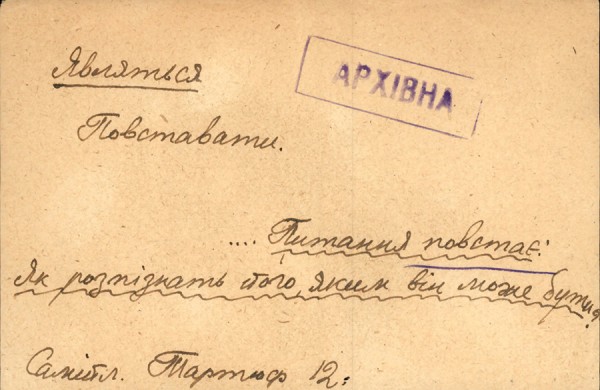 Являться
АРХІВНА
Повставати.
.... Питання повстає:
Як розпізнать його, яким він може бути?
Самійл. Тартюф 12.